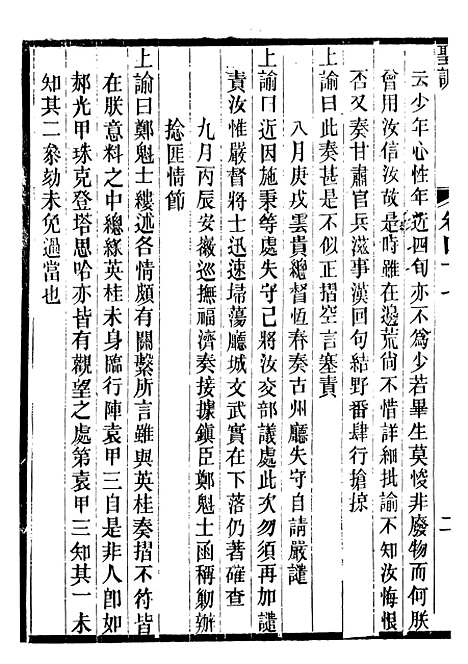 聖訓
云少年心性年近四旬亦不爲少若畢生莫悛非廢物而何朕
曾用汝信汝故是時雖在邊荒尙不惜詳細批諭不知汝悔恨
否又奏甘肅官兵滋事漢回句結野番肆行搶掠
上諭曰此奏甚是不似正摺空言塞責
八月庚戌雲貴總督恆春奏古州廳失守自請嚴譴
上諭曰近因施秉等處失守已將汝交部議處此次勿須再加譴
責汝惟嚴督將士迅速埽蕩廳城文武實在下落仍著確查
九月丙辰安徽巡撫福濟奏接據鎮臣鄭魁士函稱勦辦
捻匪情節
上諭曰鄭魁士縷述各情頗有關繫所言雖與英桂奏摺不符皆
在朕意料之中總緣英桂未身臨行陣袁甲三自是非人卽如
郝光甲珠克登塔思哈亦皆有觀望之處第袁甲三知其一未
知其二參劾未免過當也
二